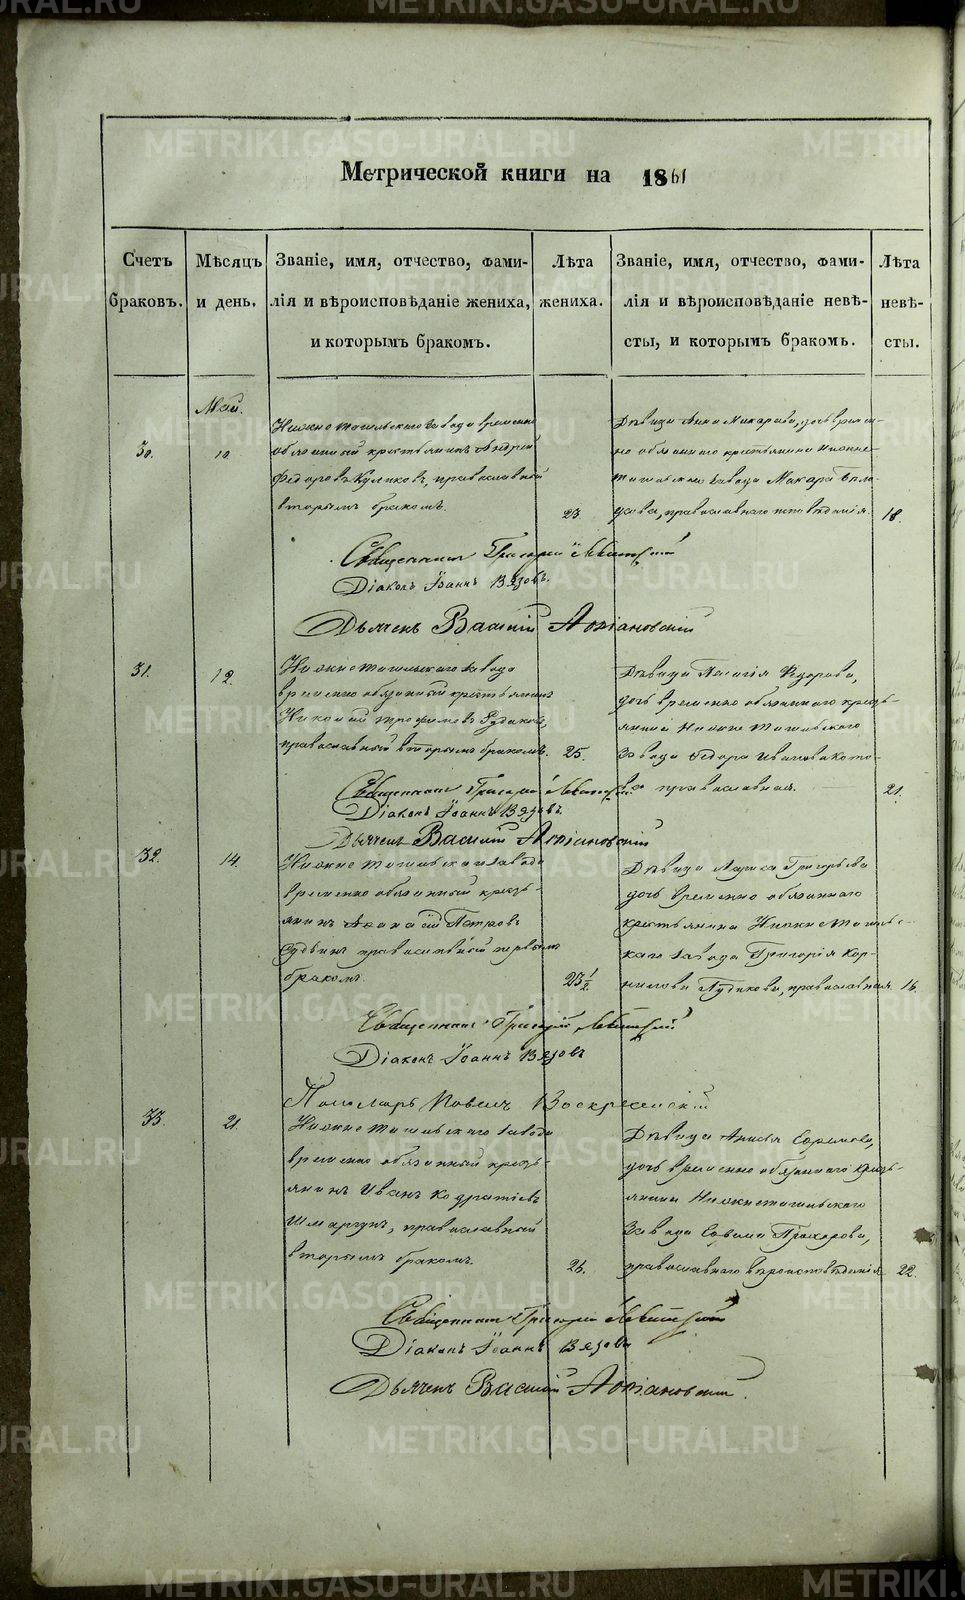 Метрической книги на 1861
Счетъ браковъ.
Мѣсяцъ и день.
Званіе, имя, отчество, фами-
лія и вѣроисповѣданіе жениха,
и которымъ бракомъ.
Лѣта жениха.
Званіе, имя, отчество, фами-
лія и вѣроисповѣданіе невѣ-
сты, и которымъ бракомъ.
Лѣта невѣ-
сты.
Май.
30.
10
Нижнетагильскаго завода временно
обязанный крестьянинъ Андрей
Федоровъ Куликовъ, православный
вторымъ бракомъ.
23
Дѣвица Анна Макарова, дочь времен-
но обязаннаго крестьянина Нижне-
тагильскаго завода Макара Бѣло-
усова, православнаго исповѣданія.
18.
Священникъ Григорій
Діаконъ Іоаннъ Вязовъ.
Дьячекъ Василій
31.
12.
Нижнетагильскаго завода
временно обязанный крестьянинъ
Николай Трофимовъ Рудаковъ,
православный вторымъ бракомъ.
25.
Дѣвица Пелагія Федорова,
дочь временно обязаннаго кресть-
янина Нижне Тагильскаго
завода Федора Иванова
православная.
21.
Священникъ Григорій
Діаконъ Іоаннъ Вязовъ.
Дьячекъ Василій
32.
14.
Нижнетагильскаго завода
временно обязанный кресть-
янинъ Афанасій Петровъ
православный первымъ
бракомъ.
23 1/2
Дѣвица Лариса Григорьева
дочь временно обязаннаго
крестьянина Нижнетагильс-
каго завода Григорія Кор-
нилова православная
Священникъ Григорій
Діаконъ Іоаннъ Вязовъ
Пономарь Павелъ Воскресенскій
33.
21.
Нижнетагильскаго завода
временно обязанный кресть-
янинъ Иванъ Кодратіевъ
православный
вторымъ бракомъ.
Дѣвица Анисья Ефремова,
дочь временно обязаннаго кресть-
янина Нижнетагильскаго
завода Ефрема Прохорова,
православнаго вѣроисповѣданія
22.
Священникъ Григорій
Діаконъ Іоаннъ Вязовъ
Дьячекъ Василій
METRIKI.GASO-URAL.RU